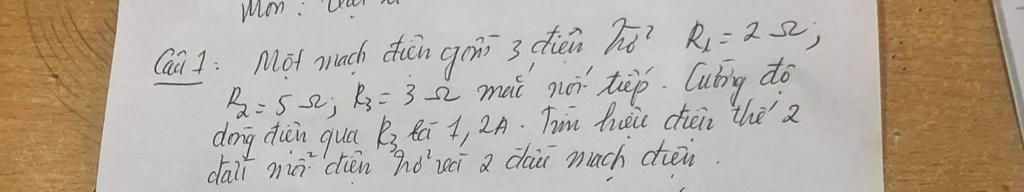 Môn : Vật lí
Câu 1: Một mạch điện gồm 3 điện trở R1 = 2 Ω;
R2 = 5 Ω; R3 = 3 Ω mắc nối tiếp. Cường độ
dòng điện qua R3 là 1,2A. Tìm hiệu điện thế 2
đầu mỗi điện trở và 2 đầu mạch điện.